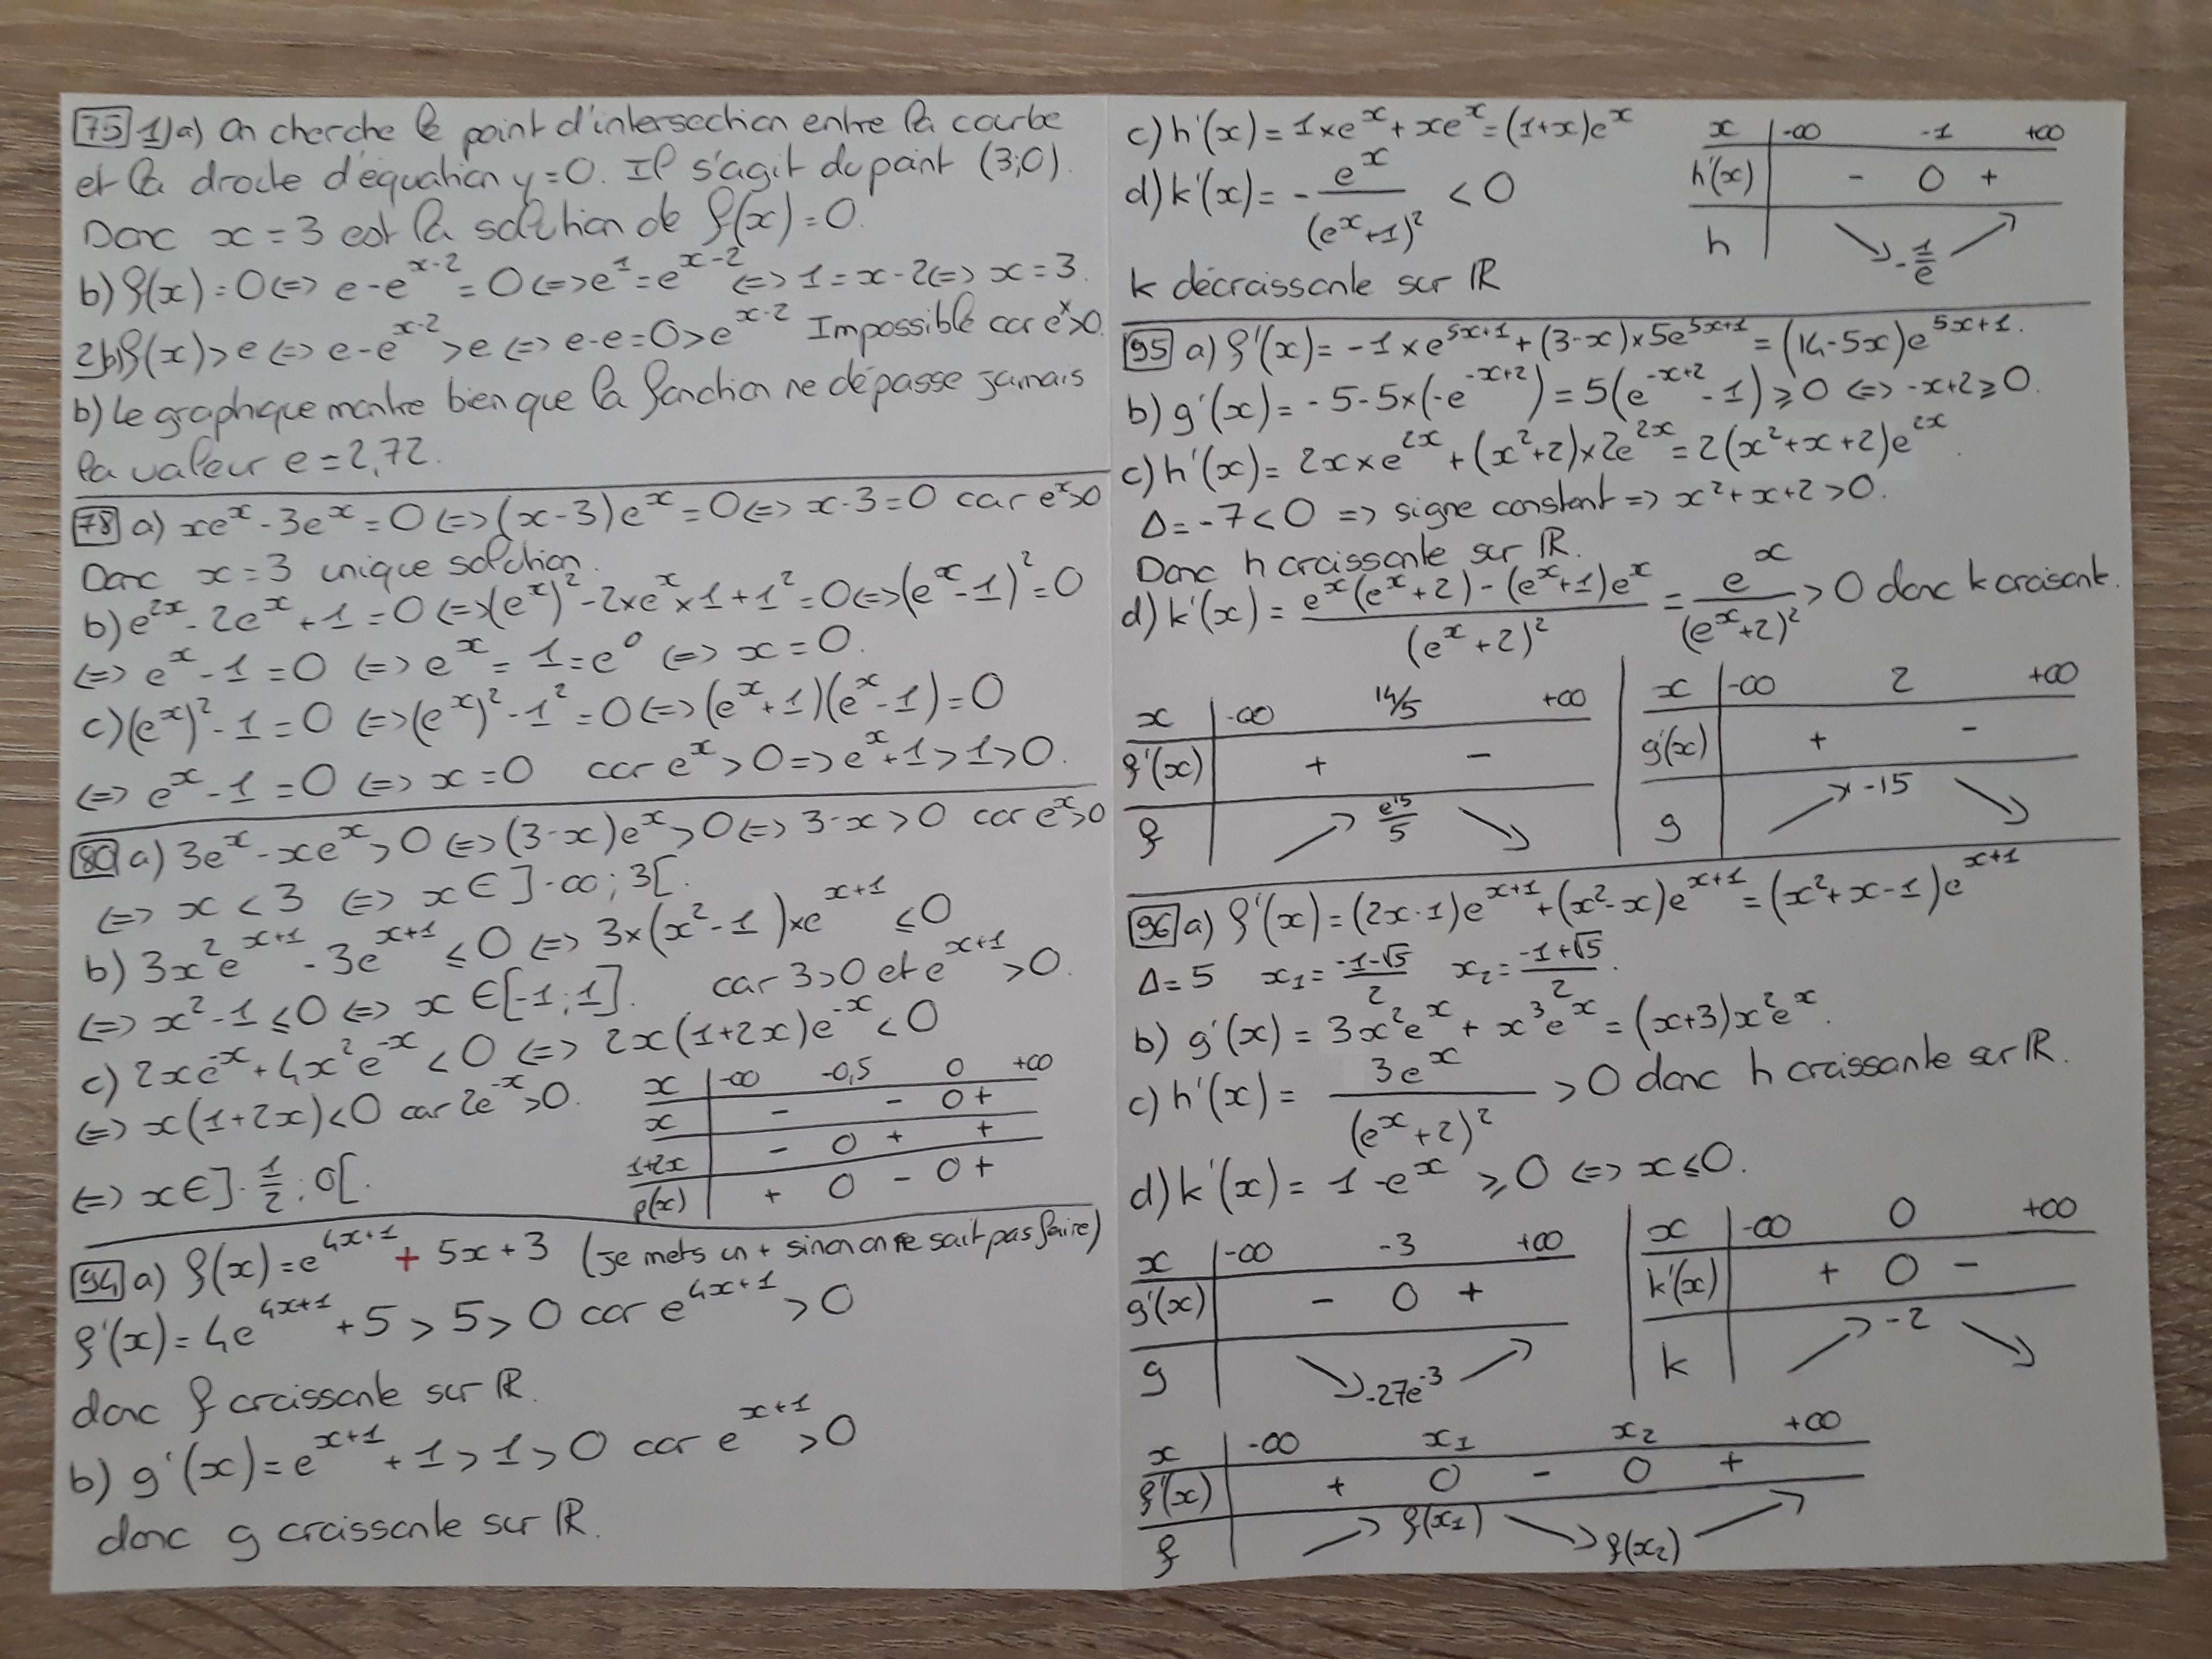 75 1)a) On cherche le point d'intersection entre la courbe
et la droite d'équation y=0. Il s'agit du point (3;0).
Donc x=3 est la solution de f(x)=0.
b) f(x)=0 <=> e-e^(x-2) = 0 <=> e^1 = e^(x-2) <=> 1=x-2 <=> x=3.
2)b) f(x)>e <=> e-e^(x-2) >e <=> e-e=0>e^(x-2) Impossible car e^x>0.
b) Le graphique montre bien que la fonction ne dépasse jamais
la valeur e=2,72.
78 a) xe^x-3e^x=0 <=> (x-3)e^x=0 <=> x-3=0 car e^x>0
Donc x=3 unique solution.
b) e^(2x)-2e^x+1=0 <=> (e^x)²-2×e^x×1+1²=0 <=> (e^x-1)²=0
<=> e^x-1=0 <=> e^x=1=e^0 <=> x=0.
c) (e^x)²-1=0 <=> (e^x)²-1²=0 <=> (e^x+1)(e^x-1)=0
<=> e^x-1=0 <=> x=0 car e^x>0 => e^x+1>1>0.
80 a) 3e^x-xe^x>0 <=> (3-x)e^x>0 <=> 3-x>0 car e^x>0
<=> x<3 <=> x∈]-∞;3[.
b) 3x²e^(x+1)-3e^(x+1) ≤0 <=> 3×(x²-1)×e^(x+1) ≤0
<=> x²-1≤0 <=> x∈[-1;1]. car 3>0 et e^(x+1) >0.
c) 2xe^(-x)+4x²e^(-x)<0 <=> 2x(1+2x)e^(-x)<0
<=> x(1+2x)<0 car 2e^(-x)>0.
<=> x∈]-1/2;0[.
x -∞ -0,5 0 +∞
x - - 0 +
1+2x - 0 + +
p(x) + 0 - 0 +
94 a) f(x)=e^(4x+1) + 5x+3 (je mets un + sinon on ne sait pas faire)
f'(x)=4e^(4x+1)+5>5>0 car e^(4x+1) >0
donc f croissante sur ℝ.
b) g'(x)=e^(x+1)+1>1>0 car e^(x+1)>0
donc g croissante sur ℝ.
c) h'(x)=1×e^x+xe^x=(1+x)e^x
x -∞ -1 +∞
h'(x) - 0 +
h ↘ -1/e ↗
d) k'(x)= -e^x/(e^x+1)² <0
k décroissante sur ℝ
95 a) f'(x)=-1×e^(5x+1)+(3-x)×5e^(5x+1)=(14-5x)e^(5x+1).
b) g'(x)=-5-5×(-e^(-x+2))=5(e^(-x+2)-1)≥0 <=> -x+2≥0.
c) h'(x)=2x×e^(2x)+(x²+2)×2e^(2x)=2(x²+x+2)e^(2x).
Δ=-7<0 => signe constant => x²+x+2>0.
Donc h croissante sur ℝ.
d) k'(x)= (e^x(e^x+2)-(e^x+1)e^x)/(e^x+2)² = e^x/(e^x+2)² >0 donc k croissante.
x -∞ 14/5 +∞
f'(x) + -
f ↗ e^15/5 ↘
x -∞ 2 +∞
g'(x) + -
g ↗ -15 ↘
96 a) f'(x)=(2x-1)e^(x+1)+(x²-x)e^(x+1)=(x²+x-1)e^(x+1)
Δ=5 x₁=(-1-√5)/2 x₂=(-1+√5)/2.
b) g'(x)=3x²e^x+x³e^x=(x+3)x²e^x.
c) h'(x)= 3e^x/(e^x+2)² >0 donc h croissante sur ℝ.
d) k'(x)=1-e^x ≥0 <=> x≤0.
x -∞ -3 +∞
g'(x) - 0 +
g ↘ -27e^(-3) ↗
x -∞ 0 +∞
k'(x) + 0 -
k ↗ -2 ↘
x -∞ x₁ x₂ +∞
f'(x) + 0 - 0 +
f ↗ f(x₁) ↘ f(x₂) ↗